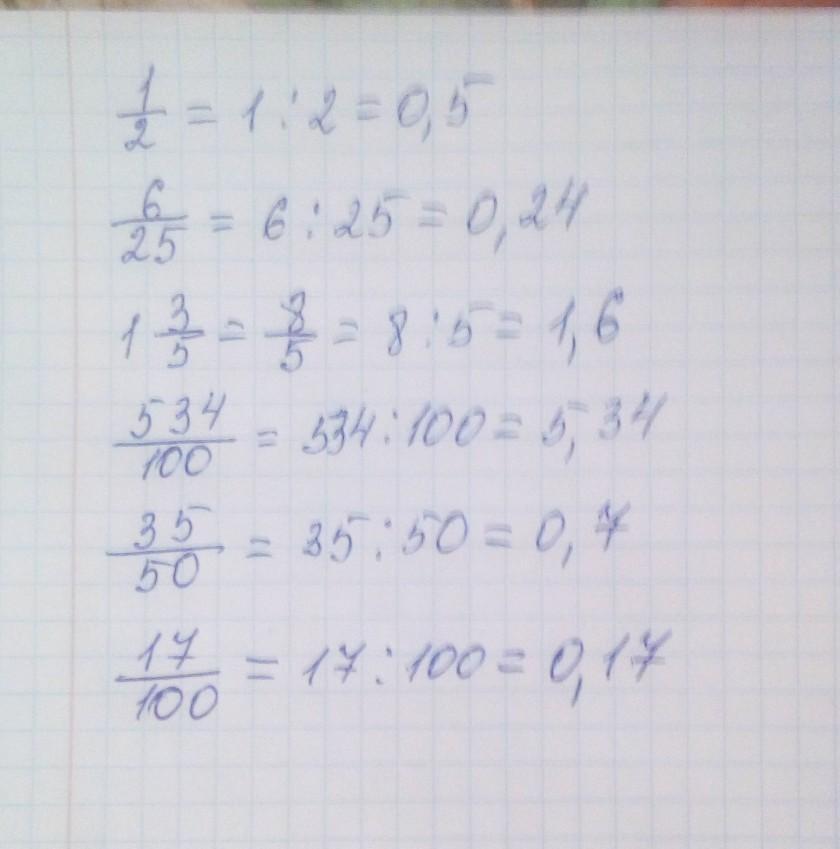 1/2 = 1 : 2 = 0,5
6/25 = 6 : 25 = 0,24
1 3/5 = 8/5 = 8 : 5 = 1,6
534/100 = 534 : 100 = 5,34
35/50 = 35 : 50 = 0,7
17/100 = 17 : 100 = 0,17